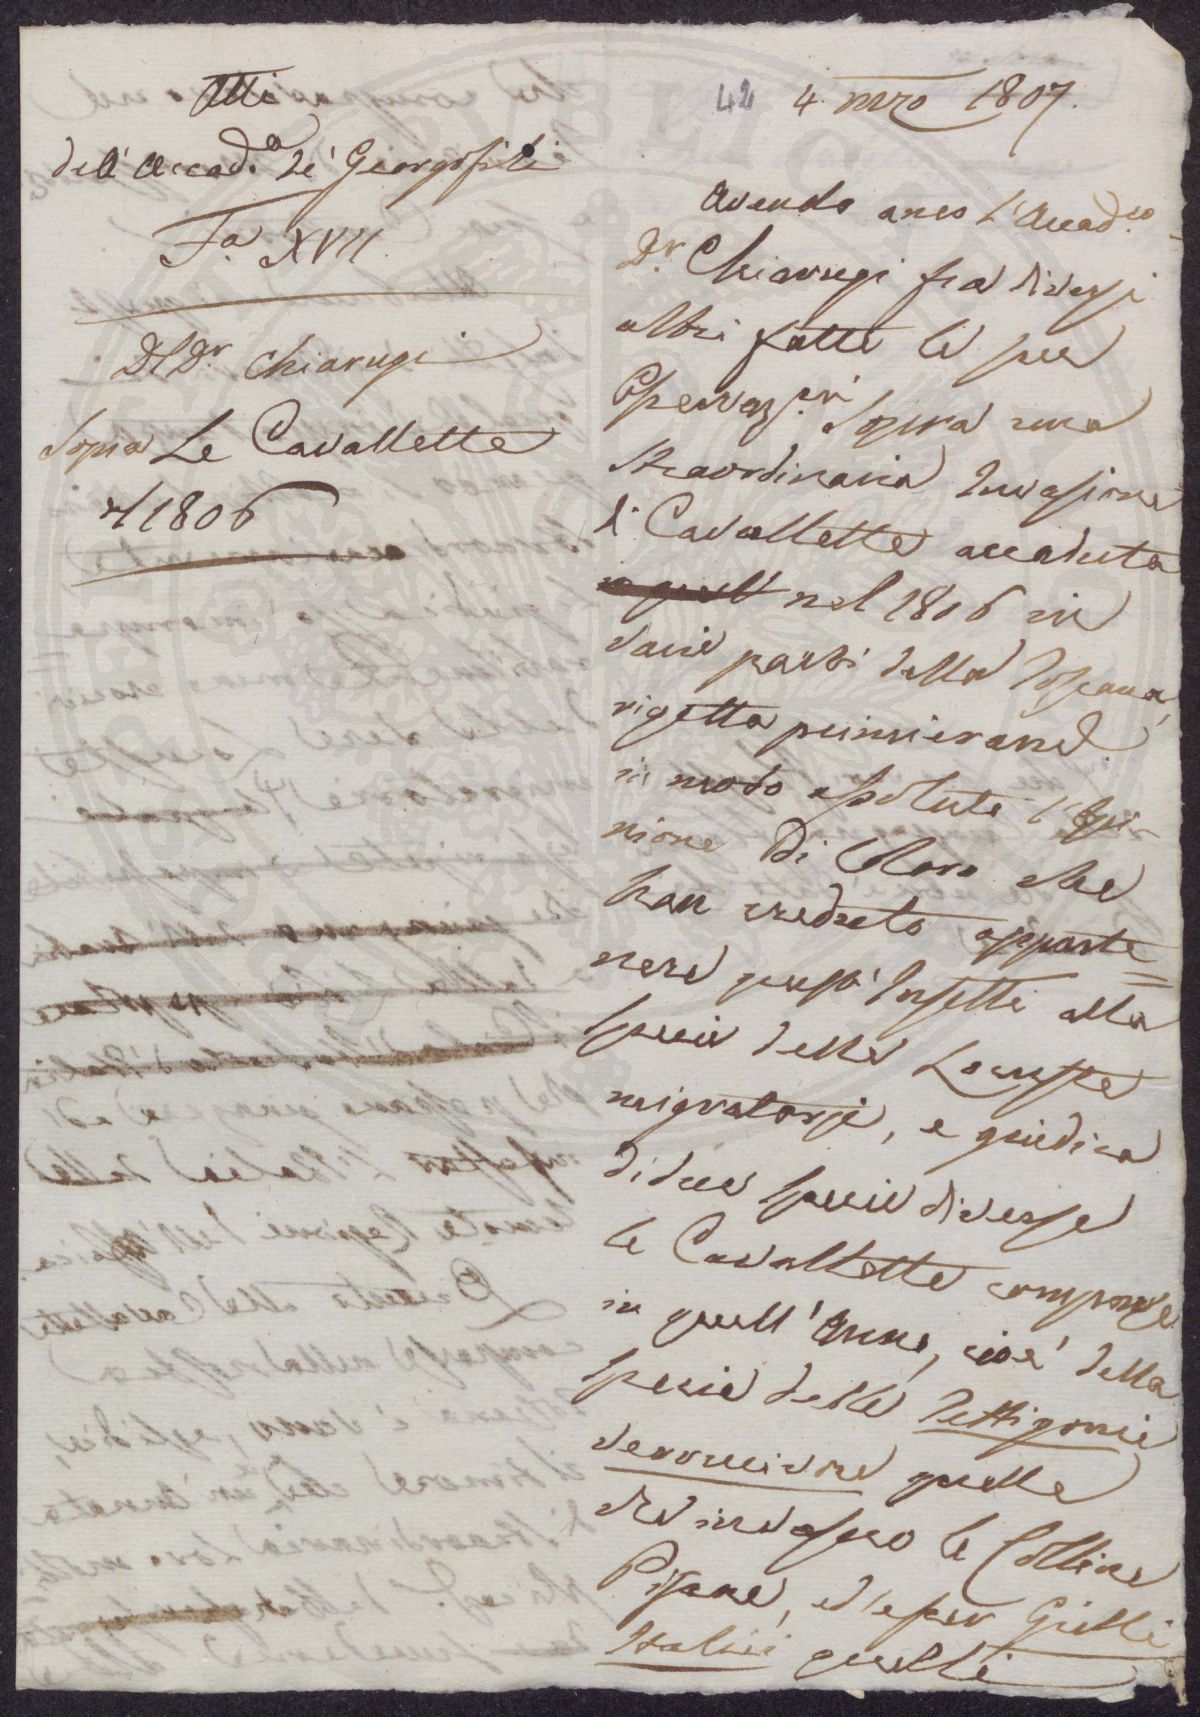 Atti
dell'Accad.a de' Georgofili
Fa. XVII
Del Dr. Chiarugi
Sopra Le Cavallette
1806
42
4 mzo 1807.
Avendo anco l'Accad.co
Dr. Chiarugi fra diversi
altri fatte le sue
Osservaz.oni sopra una
straordinaria Invasione
di Cavallette accaduta
nel 1806 in
varie parti della Toscana,
rigetta primieramte
in modo assoluto l'Opi-
nione di Coloro che
han creduto apparte=
nere questi Insetti alla
specie delle Locuste
migratorje, e giudica
di due specie diverse
le Cavallette comparse
in quell'Anno, cioè della
specie delle Tettigonie
verrucivore quelle
che invasero le Colline
Pisane, ed esser Grilli
Italici quelli